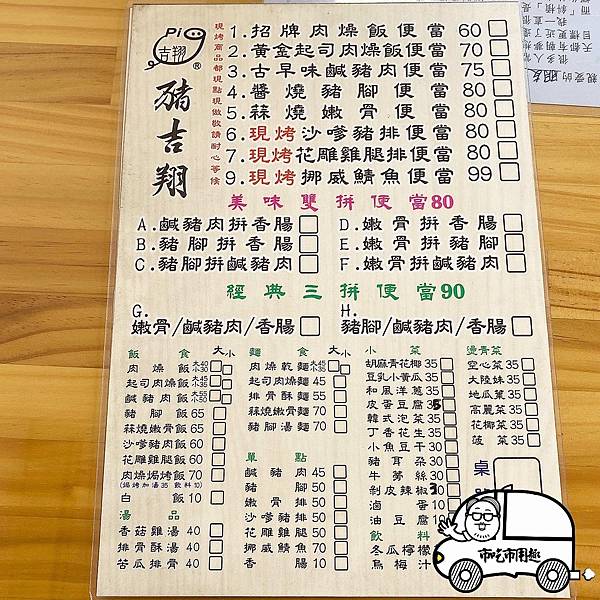 Pi
吉翔
®
豬吉翔
現烤商品都現點現做敬請耐心等候
1.招牌肉燥飯便當 60
2.黃金起司肉燥飯便當 70
3.古早味鹹豬肉便當 75
4.醬燒豬腳便當 80
5.蒜燒嫩骨便當 80
6.現烤沙嗲豬排便當 80
7.現烤花雕雞腿排便當 99
9.現烤挪威鯖魚便當 99
美味雙拼便當80
A.鹹豬肉拼香腸
B.豬腳拼香腸
C.豬腳拼鹹豬肉
D.嫩骨拼香腸
E.嫩骨拼豬腳
F.嫩骨拼鹹豬肉
經典三拼便當90
G.
嫩骨/鹹豬肉/香腸
H.
豬腳/鹹豬肉/香腸
飯食 大 小
肉燥飯
起司肉燥飯
鹹豬肉飯
豬腳飯 65
蒜燒嫩骨飯 65
沙嗲豬肉飯 60
花雕雞腿飯 60
肉燥焗烤飯 70
(焗烤加湯35 飲料10)
白飯 10
湯品
香菇雞湯 40
排骨酥湯 40
苦瓜排骨 40
麵食 大 小
肉燥乾麵
起司肉燥麵 45
排骨酥麵 55
蒜燒嫩骨麵 70
豬腳湯麵 70
單點
鹹豬肉 45
豬腳 50
嫩骨排 50
沙嗲豬排 50
花雕雞腿 50
挪威鯖魚 50
香腸 10
小菜
胡麻青花椰 35
豆乳小黃瓜 35
和風洋蔥 35
皮蛋豆腐 35
韓式泡菜 35
丁香花生 35
小魚豆干 30
豬耳朵 30
牛蒡絲 30
剝皮辣椒
滷蛋 10
油豆腐 10
飲料
冬瓜檸檬
烏梅汁
燙青菜
空心菜 35
大陸妹 35
地瓜葉 35
高麗菜 35
花椰菜 35
菠菜 35
桌
吃